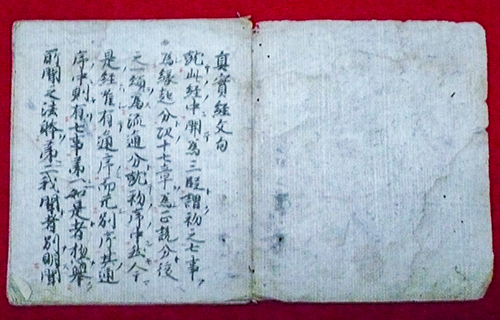 真實經文句
就此經中開為三段謂初之七事
為緣起分次十七章為正說分後
之一頌為流通分就初序中然今
是經唯有通序而无別序其通
序中則有七事第一如是者指舉
所聞之法體第二我聞者別明聞